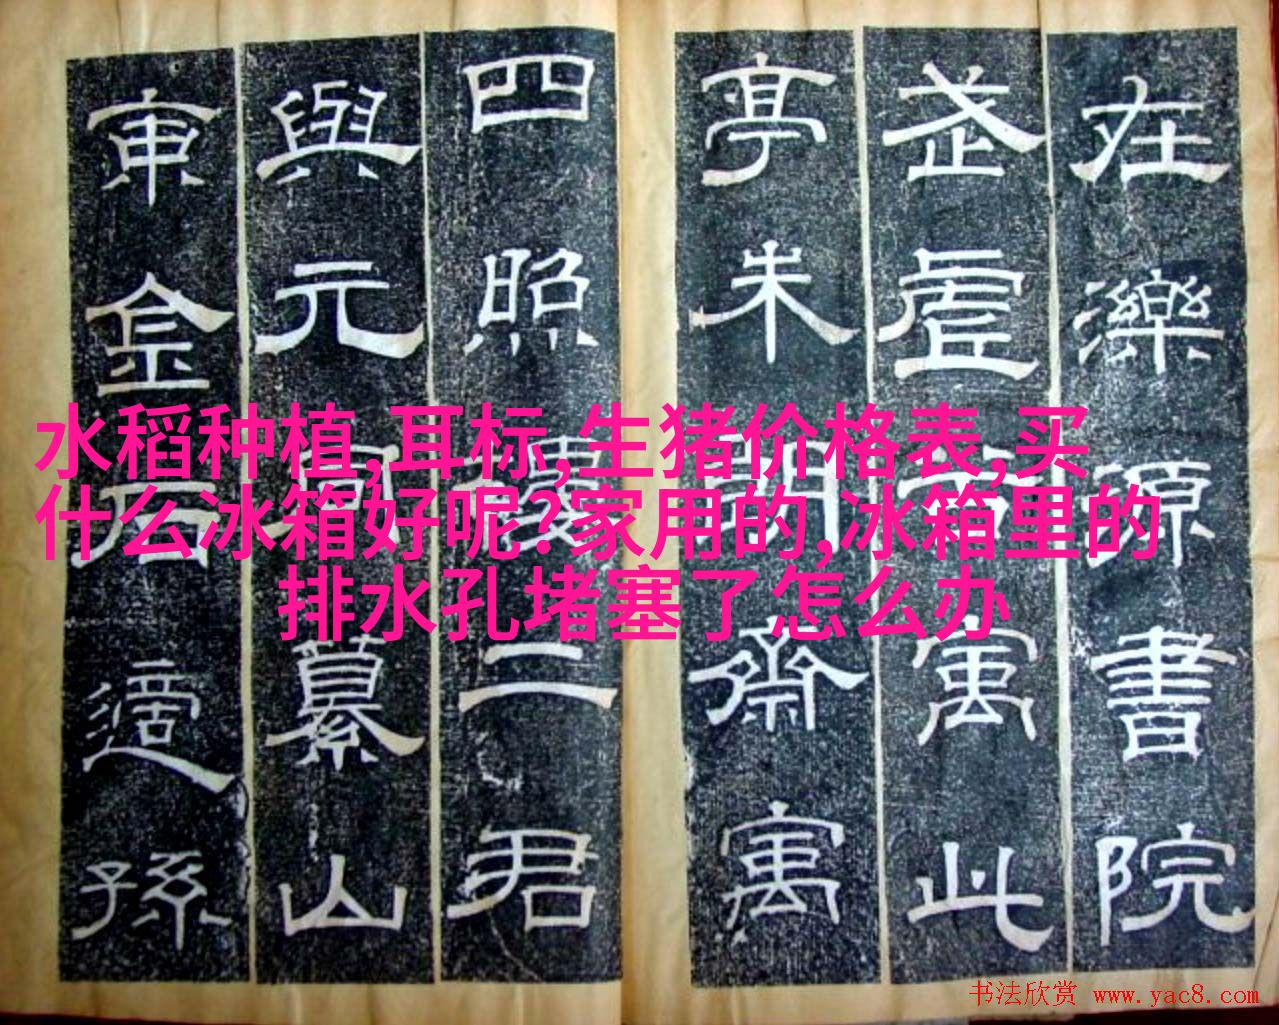 在濼源書院
武虛谷寓此
亭朱朗齋寓
四照樓二君
與元同纂山
東金石適孫
水稻种植,耳标,生猪价格表,买
什么冰箱好呢?家用的,冰箱里的
排水孔堵塞了怎么办
书法欣赏 www.yac8.com